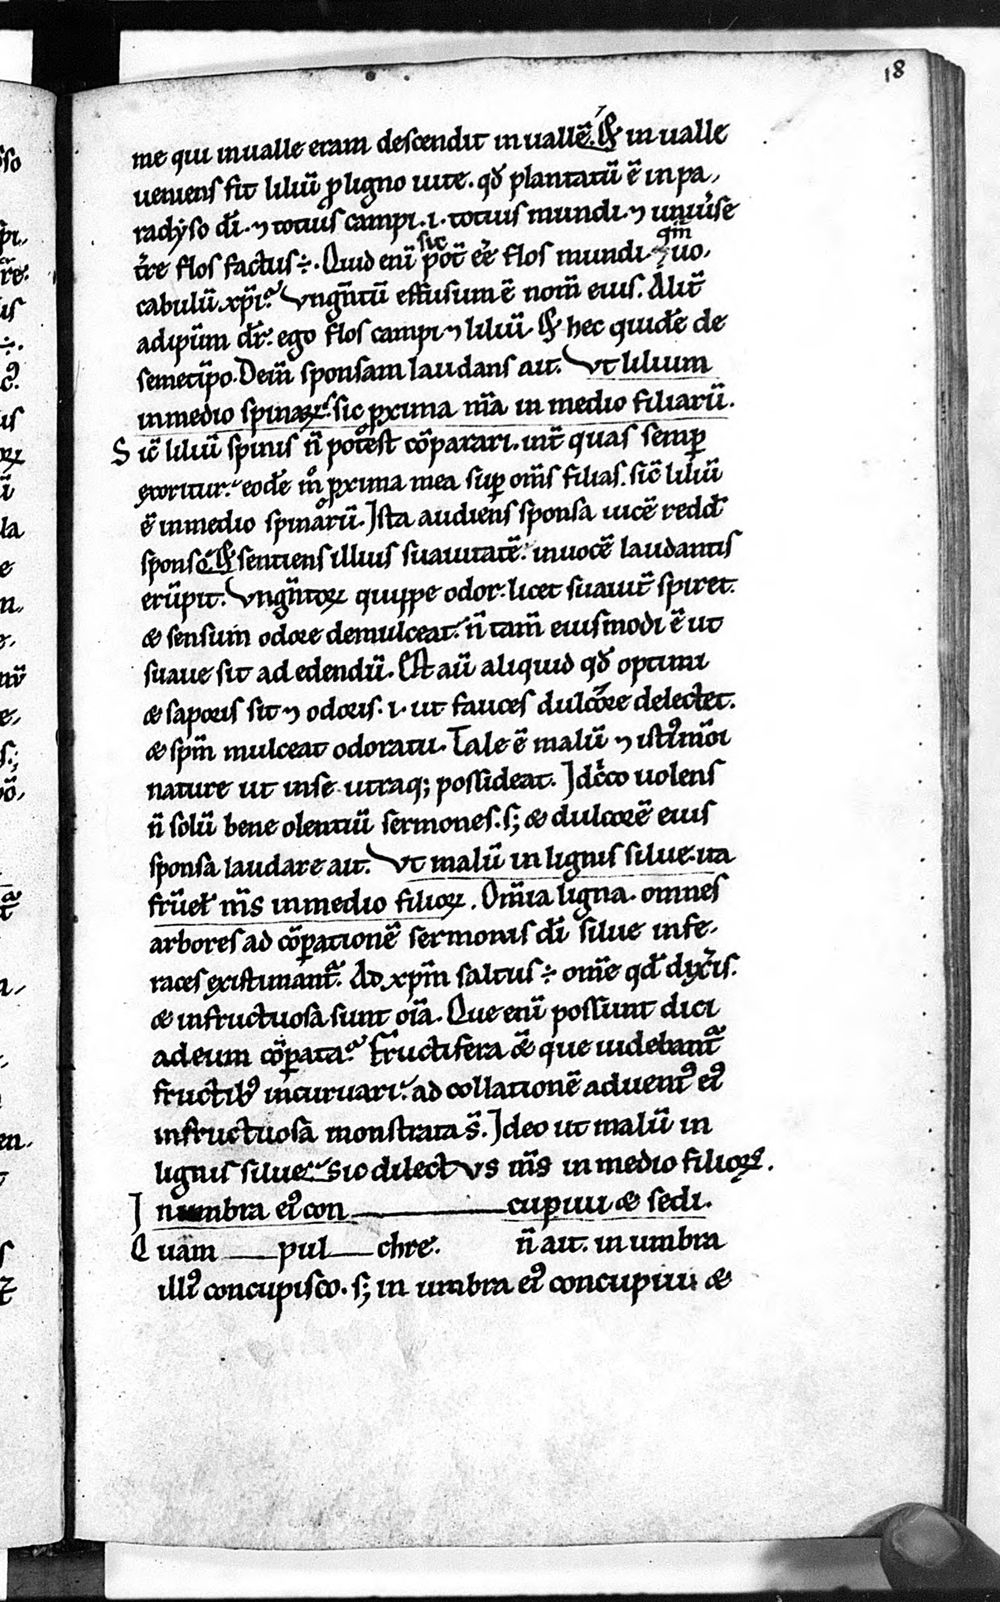 18
me qui inualle eram descendit in uallē. Et in ualle
ueniens fit liliū ꝓ ligno uite. qđ plantatū ē in pa,
radyso dī. ⁊ totius campi .i. totius mundi. ⁊ uniu̾se
t̾re flos factus ÷. Quid eni̅ sic pot̅ ee̅ flos mundi. qm̅ uo,
cabulū xp̅i? Vngn̅tū effusum ē nom̅ eius. Alit̅
adipu̅m dr̅. ego flos campi ⁊ liliū. Et hec quidē de
semetip̅o. Dein̅ sponsam laudans ait. Vt lilium
in medio spinaꝝ. sic ꝓxima m̅a in medio filiarū.
Sic̅ liliū spinis n̅ potest cōparari. int̅ quas semꝑ
exoritur. eodē mͦ ꝓxima mea suꝑ om̅s filias. sic̅ liliū
ē in medio spinarū. Ista audiens sponsa uicē redd̅
sponso. Et sentiens illius suauitatē. inuocē laudantis
eru̅pit. Vngn̅toꝝ quippe odor. licet suauit̅ spiret.
& sensum odore demulceat. n̅ tam̅ eiusmodi ē ut
suaue sit ad edendū. Est au̅ aliquid qđ optimi
& saporis sit ⁊ odoris. i. ut fauces dulcore delectet.
& sp̅m mulceat odoratu. Tale ē malū ⁊ istiꝰmōi
nature ut in se utraq; possideat. Idcͥco uolens
n̅ solū bene olentiū sermones. s; & dulcorē eius
sponsa laudare ait. Vt malū in lignis silue. ita
fr̅uel̅ m̅s in medio filioꝝ. Om̅ia ligna. omnes
arbores ad cōparationē sermonis dī silue infe,
races existimant̅. Ad xp̅m saltus ÷ om̅e qđ dix̾is.
& infructuosa sunt oi̅a. Que eni̅ possunt dici
ad eum cōparata? Fructifera & que uidebant̅
fructibꝰ incuruari. ad collationē aduentꝰ eiꝰ
infructuosa monstrata s̅. Ideo ut malū in
lignis silue. sic dilectus m̅s in medio filioꝝ.
In umbra eiꝰ con cupiui & sedi.
Quam pul chre. n̅ ait. in umbra
illiꝰ concupisco. s; in umbra eiꝰ concupiui &